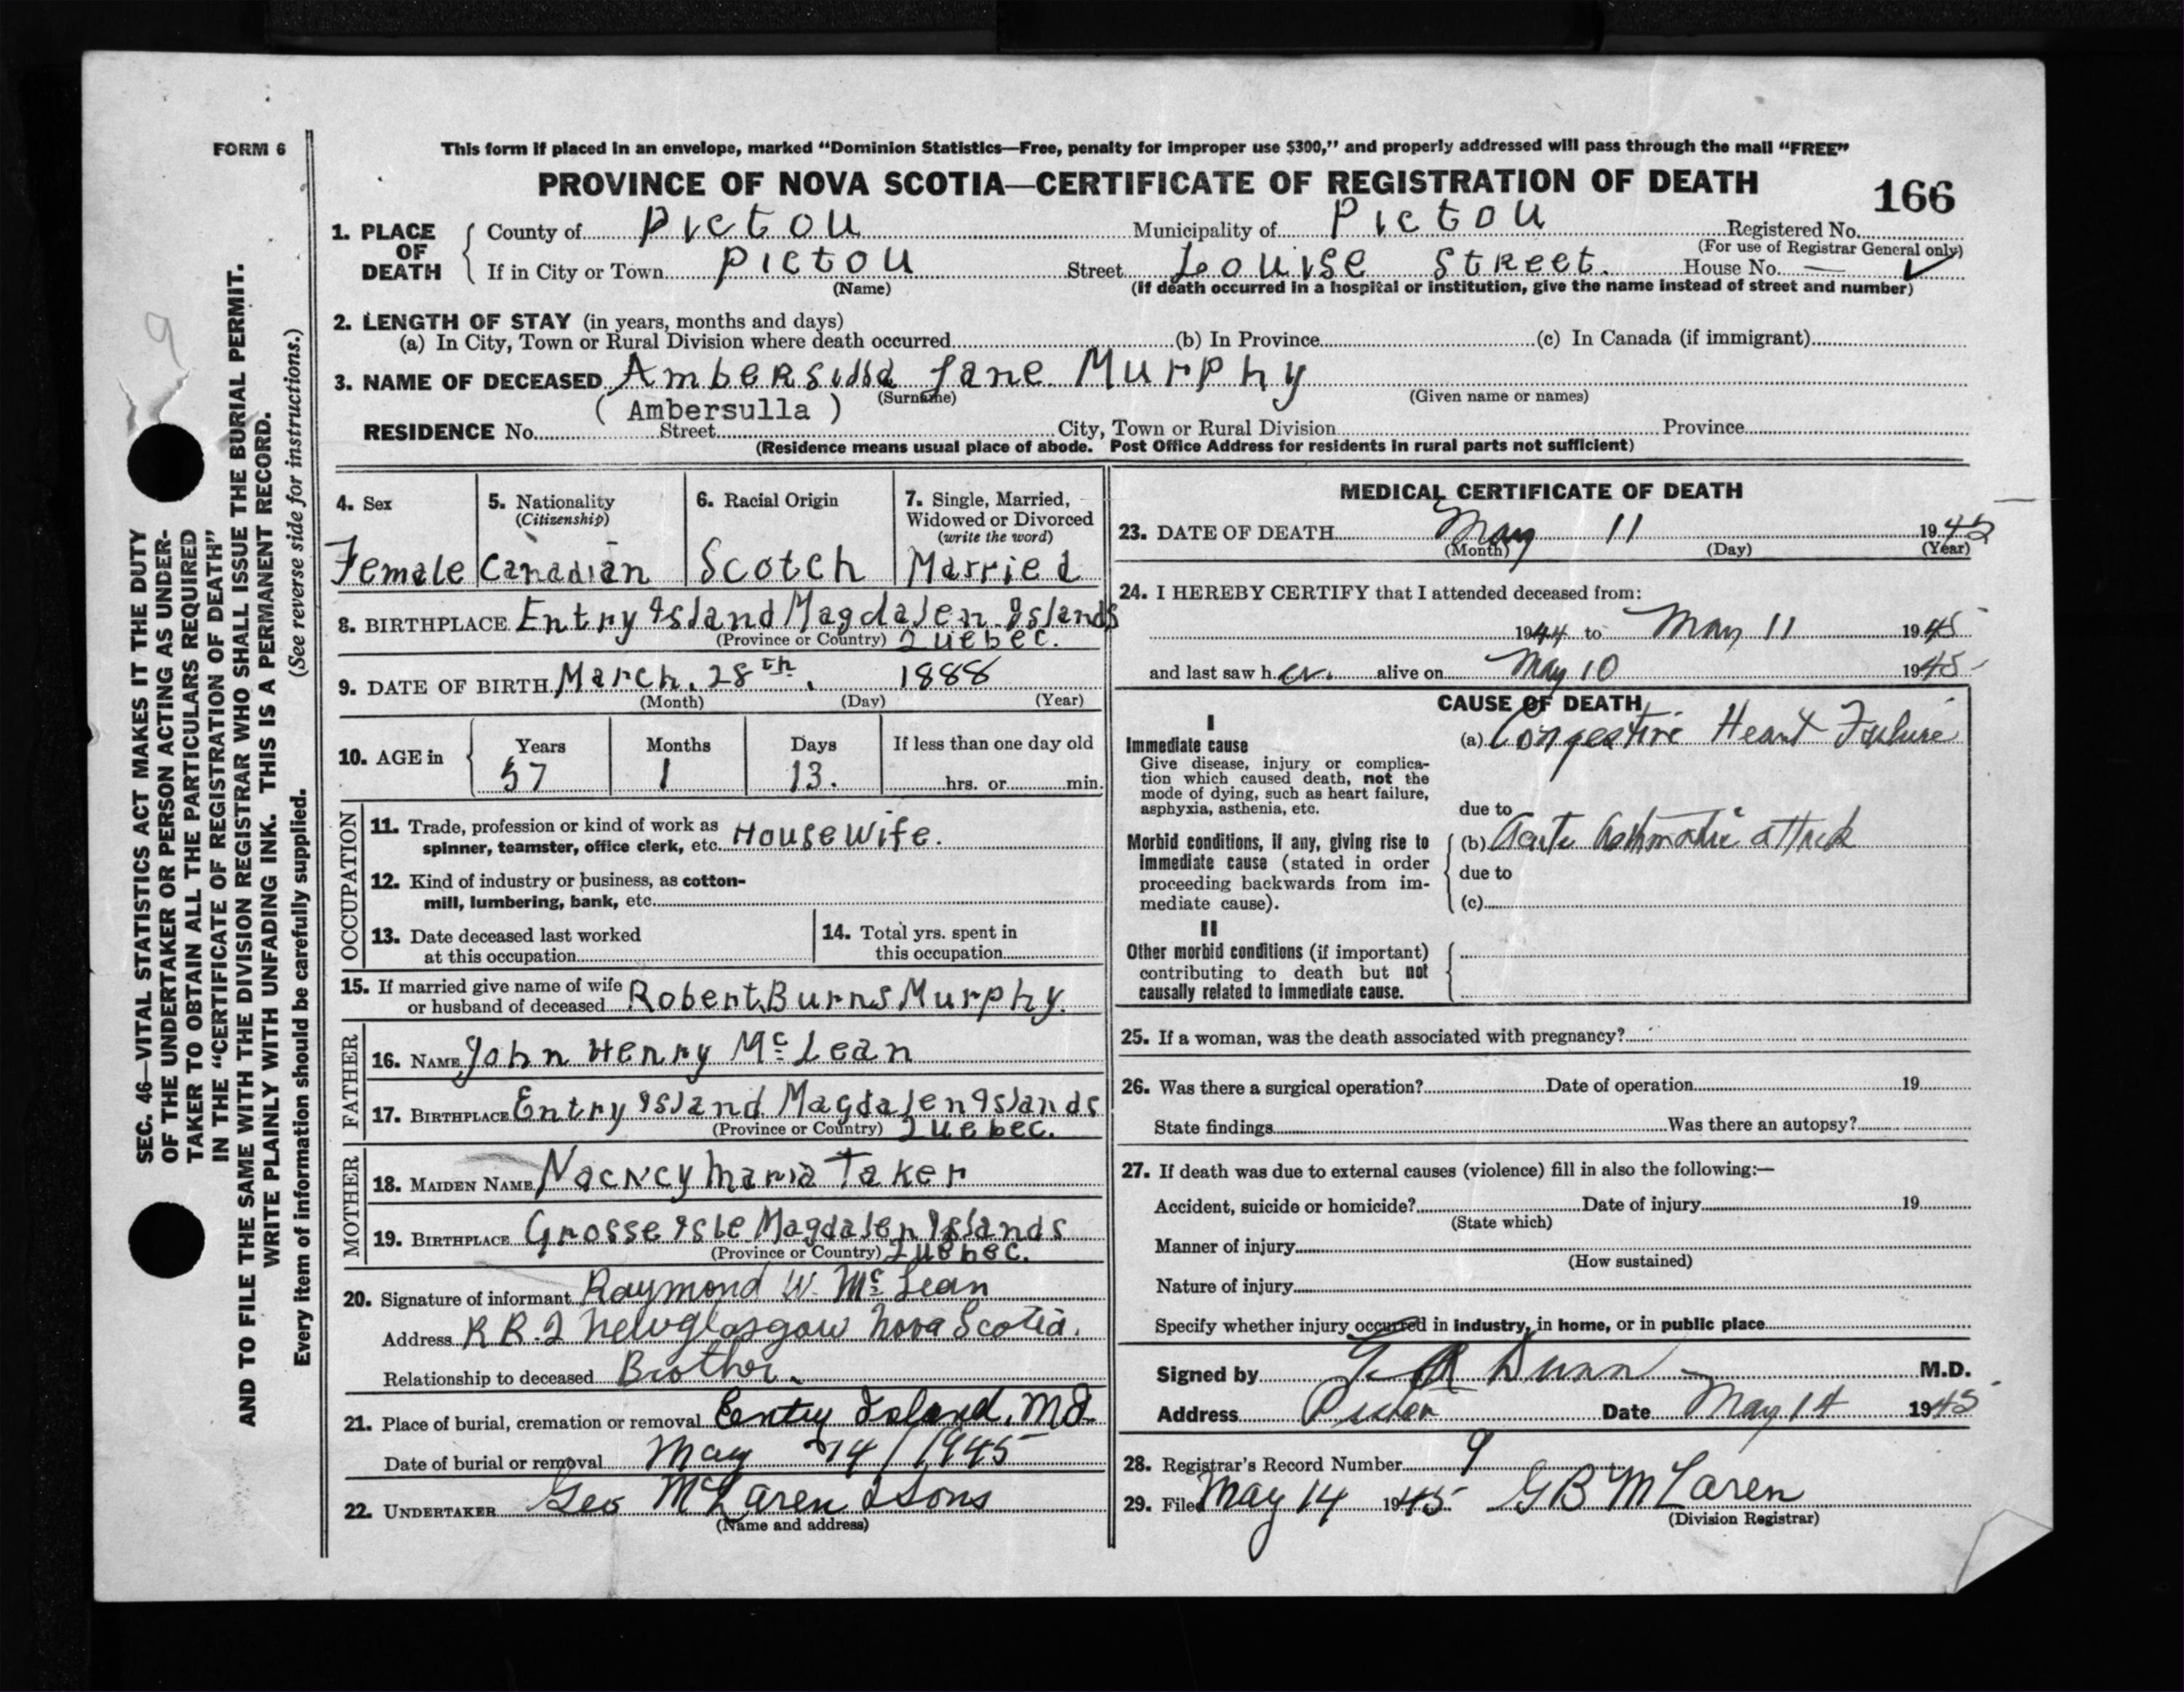 FORM 6
This form if placed in an envelope, marked “Dominion Statistics—Free, penalty for improper use $300,” and properly addressed will pass through the mail “FREE”
PROVINCE OF NOVA SCOTIA—CERTIFICATE OF REGISTRATION OF DEATH
166
1. PLACE OF DEATH
County of Pictou Municipality of Pictou Registered No.
(For use of Registrar General only)
If in City or Town Pictou Street Louise Street. House No. — ✓
(Name) (If death occurred in a hospital or institution, give the name instead of street and number)
2. LENGTH OF STAY (in years, months and days)
(a) In City, Town or Rural Division where death occurred (b) In Province (c) In Canada (if immigrant)
3. NAME OF DECEASED Ambersulla Jane Murphy
(Surname) (Given name or names)
( Ambersulla )
RESIDENCE No. Street City, Town or Rural Division Province
(Residence means usual place of abode. Post Office Address for residents in rural parts not sufficient)
4. Sex
Female
5. Nationality
(Citizenship)
Canadian
6. Racial Origin
Scotch
7. Single, Married,
Widowed or Divorced
(write the word)
Married
8. BIRTHPLACE Entry Island Magdalen Islands
(Province or Country) Quebec.
9. DATE OF BIRTH March. 28th. 1888
(Month) (Day) (Year)
10. AGE in
Years Months Days If less than one day old
57 1 13. hrs. or min.
OCCUPATION
11. Trade, profession or kind of work as
spinner, teamster, office clerk, etc. Housewife.
12. Kind of industry or business, as cotton-
mill, lumbering, bank, etc.
13. Date deceased last worked
at this occupation
14. Total yrs. spent in
this occupation
15. If married give name of wife
or husband of deceased Robert Burns Murphy.
FATHER
16. NAME John Henry Mc Lean
17. BIRTHPLACE Entry Island Magdalen Islands
(Province or Country) Quebec.
MOTHER
18. MAIDEN NAME Nacncy Maria Taker
19. BIRTHPLACE Grosse Isle Magdalen Islands
(Province or Country) Quebec.
20. Signature of informant Raymond W. Mc Lean
Address R R. 2 Newglasgow Nova Scotia.
Relationship to deceased Brother.
21. Place of burial, cremation or removal Entry Island, M.I.
Date of burial or removal May 14/1945
22. UNDERTAKER Geo McLaren & Sons
(Name and address)
MEDICAL CERTIFICATE OF DEATH
23. DATE OF DEATH May 11 1945
(Month) (Day) (Year)
24. I HEREBY CERTIFY that I attended deceased from:
1944 to May 11 1945
and last saw her alive on May 10 1945
CAUSE OF DEATH
I
Immediate cause
Give disease, injury or complica-
tion which caused death, not the
mode of dying, such as heart failure,
asphyxia, asthenia, etc.
(a) Congestive Heart Failure
due to
Morbid conditions, if any, giving rise to
immediate cause (stated in order
proceeding backwards from im-
mediate cause).
(b) Acute Asthmatic attack
due to
(c)
II
Other morbid conditions (if important)
contributing to death but not
causally related to immediate cause.
25. If a woman, was the death associated with pregnancy?
26. Was there a surgical operation? Date of operation 19
State findings Was there an autopsy?
27. If death was due to external causes (violence) fill in also the following:—
Accident, suicide or homicide? Date of injury 19
(State which)
Manner of injury
(How sustained)
Nature of injury
Specify whether injury occurred in industry, in home, or in public place
Signed by Dunn M.D.
Address Date May 14 1945
28. Registrar's Record Number 9
29. Filed May 14 1945 G B McLaren
(Division Registrar)
SEC. 46—VITAL STATISTICS ACT MAKES IT THE DUTY
OF THE UNDERTAKER OR PERSON ACTING AS UNDER-
TAKER TO OBTAIN ALL THE PARTICULARS REQUIRED
IN THE “CERTIFICATE OF REGISTRATION OF DEATH”
AND TO FILE THE SAME WITH THE DIVISION REGISTRAR WHO SHALL ISSUE THE BURIAL PERMIT.
WRITE PLAINLY WITH UNFADING INK. THIS IS A PERMANENT RECORD.
Every item of information should be carefully supplied. (See reverse side for instructions.)
9